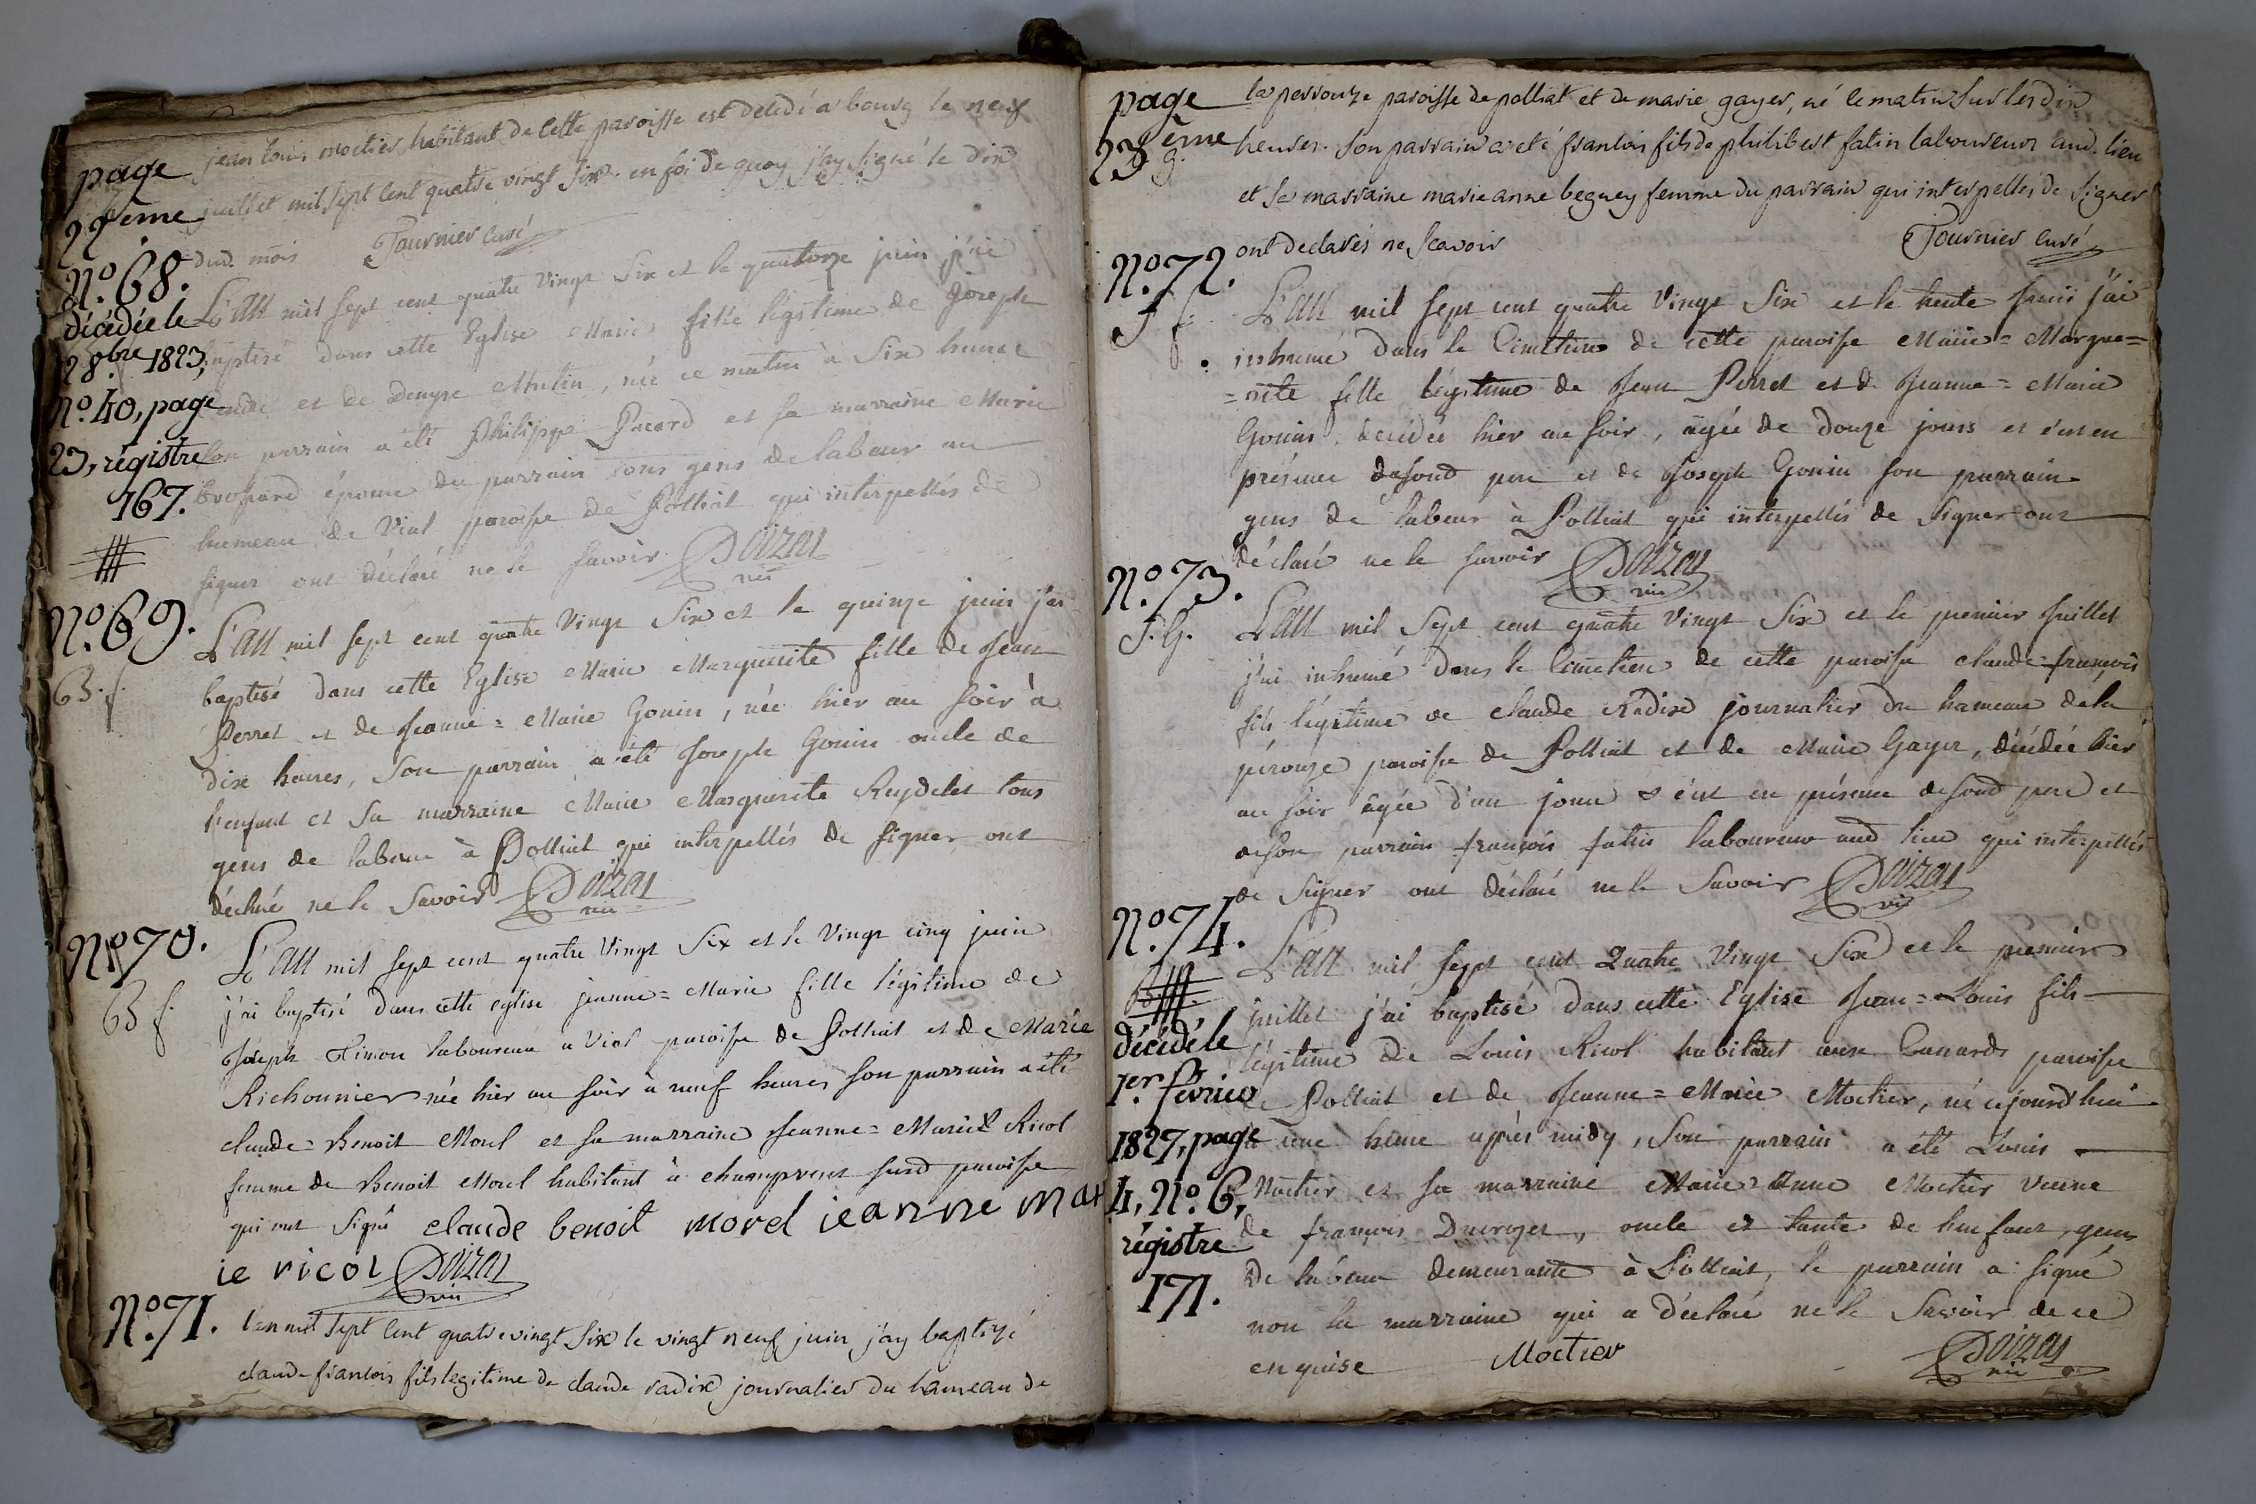 page
22ème
jean louis moctier habitant de cette paroisse est decedé a bourg le neuf
juillet mil sept cent quatre vingt six. en foi de quoy j'ay signé le dix
dud. mois Tournier curé
N.º 68.
décédée le
28.bre 1823,
Nº 40, page
23, régistre
167.
L'an mil sept cent quatre vingt six et le quatorze juin j'ai
baptisé dans cette Eglise Marie fille légitime de Joseph
et de Denyse Mutin, née ce matin à six heures
son parrain a été Philippe Pacard et sa marraine Marie
Brochard épouse du parrain tous gens de labeur au
hameau de Vial paroisse de Polliat qui interpellés de
signer ont déclaré ne le savoir Doizas
vic
Nº 69.
B. f.
L'an mil sept cent quatre vingt six et le quinze juin j'ai
baptisé dans cette Eglise Marie Marguerite fille de Jean
Perret et de Jeanne=Marie Gonin, née hier au soir à
dix heures, son parrain a été Joseph Gonin oncle de
l'enfant et sa marraine Marie Marguerite Reydelet tous
gens de labeur à Polliat qui interpellés de signer ont
déclaré ne le savoir Doizas
vic
Nº 70.
B f.
L'an mil sept cent quatre vingt six et le vingt cinq juin
j'ai baptisé dans cette eglise jeanne=Marie fille légitime de
Joseph Simon laboureur a Vial paroisse de Polliat et de Marie
Richonnier née hier au soir à neuf heures son parrain a été
claude=Benoit Morel et sa marraine Jeanne=Marie Ricol
femme de Benoit Morel habitant à champvent susd paroisse
qui ont signé claude benoit morel ieanne mar
ie ricol Doizas
vic
Nº. 71.
l'an mil sept cent quatre vingt six le vingt neuf juin j'ay baptizé
claude francois fils legitime de claude radix journalier du hameau de
page
23ème
la perrouze paroisse de polliat et de marie gayer, né le matin sur les dix
heures. son parrain a eté francois fils de philibert fatin laboureur aud. lieu
et sa marraine marie anne beguey femme du parrain qui interpellés de signer
ont declarés ne scavoir Tournier curé
Nº. 72.
S f.
L'an mil sept cent quatre vingt six et le trente juin j'ai
inhumé dans le Cimetiere de cette paroisse Marie=Margue=
=rite fille légitime de Jean Perret et de Jeanne=Marie
Gonin, décédée hier au soir, agée de douze jours et c'ut en
présence de son d pere et de Joseph Gonin son parrain
gens de labeur à Polliat qui interpellés de signer ont
déclaré ne le savoir Doizas
vic
Nº. 73.
S. G.
L'an mil sept cent quatre vingt six et le premier juillet
j'ai inhumé dans le Cimetiere de cette paroisse claude françois
fils légitime de claude Radix journalier du hameau de la
pérouze paroisse de Polliat et de Marie Gayer, décédée hier
au soir agée d'un jour & c'ut en présence de son d pere et
de son parrain françois fatin laboureur aud lieu qui interpellés
de signer ont déclaré ne le savoir Doizas
vic
Nº. 74.
décédé le
1.er février
1827, page
4, Nº. 6,
régistre
171.
L'an mil sept cent Quatre vingt six et le premier
juillet j'ai baptisé dans cette Eglise Jean=Louis fils
légitime de Louis Ricol habitant aux Canards paroisse
de Polliat et de Jeanne=Marie Moctier, né cejourd'hui
à une heure après midy, son parrain a été Louis
Moctier et sa marraine Marie=Anne Moctier veuve
de françois Ducroyet, oncle et tante de l'enfant, gens
de labeur demeurants à Polliat, le parrain a signé
non la marraine qui a déclaré ne le savoir de ce
enquise Moctier Doizas
vic